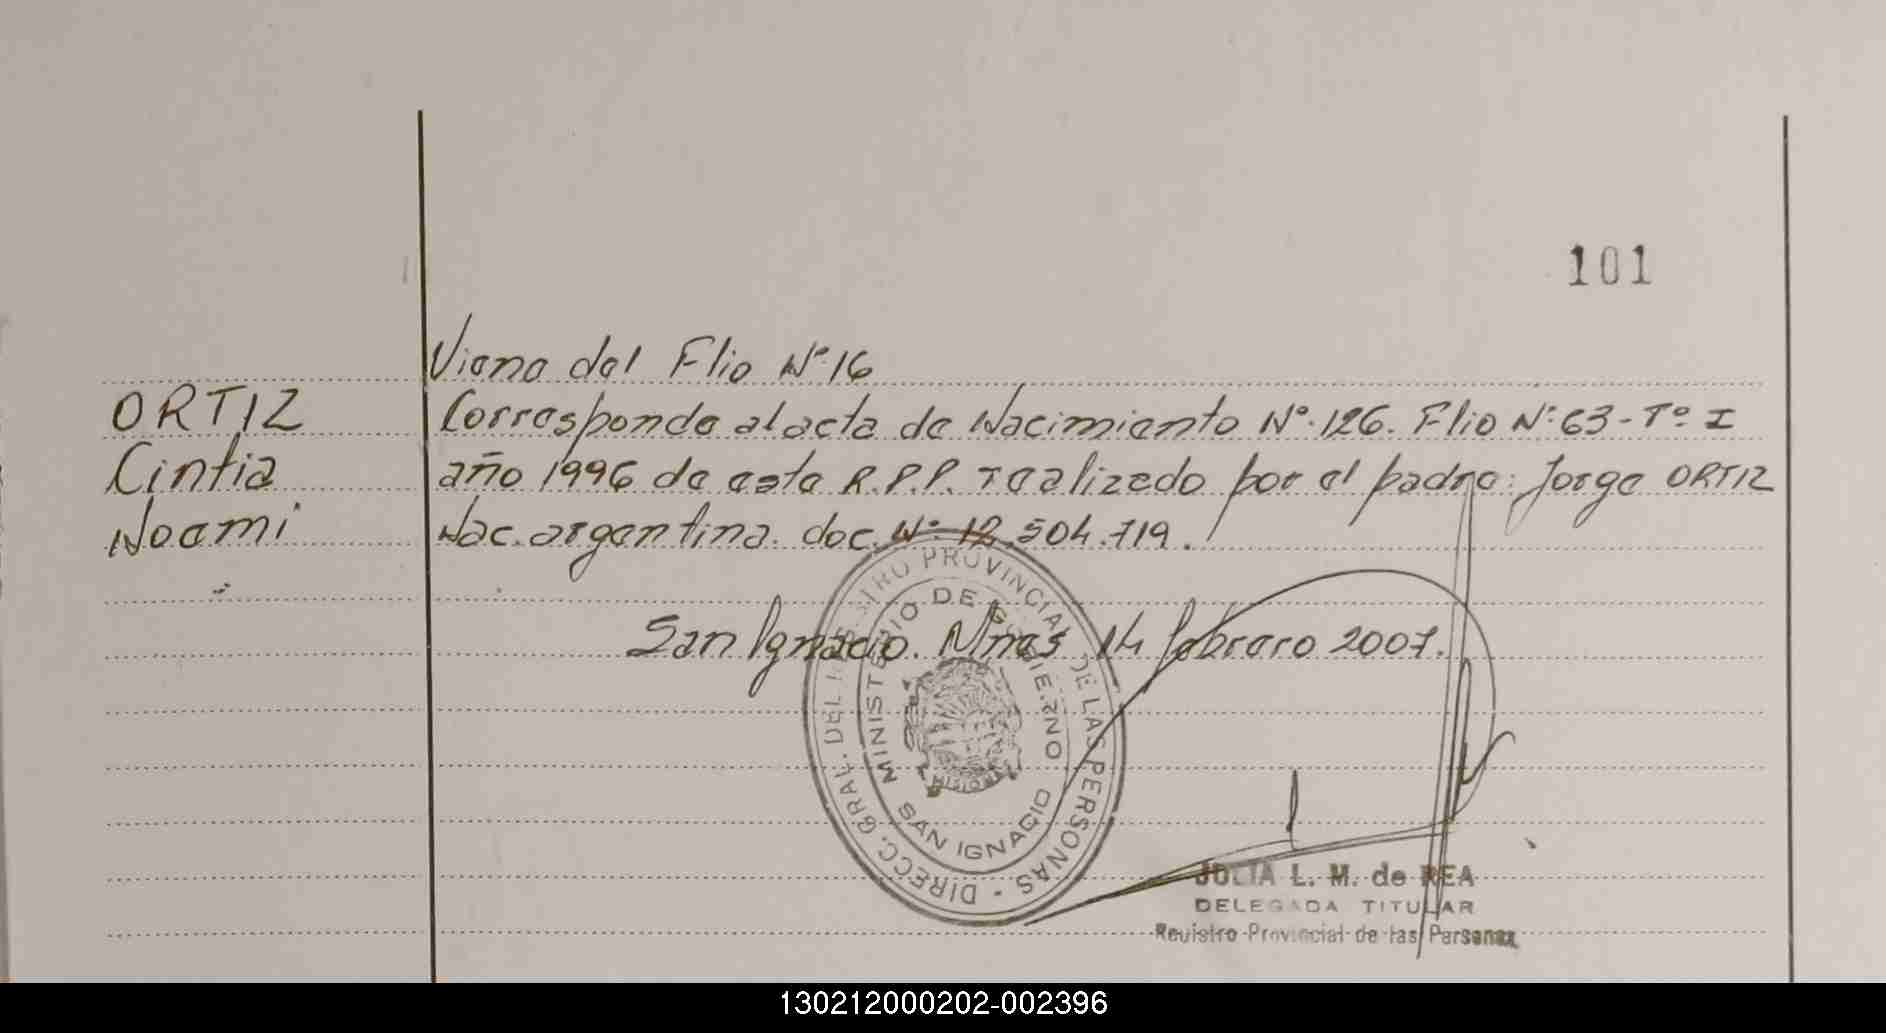 101
Viene del Flio Nº 16
ORTIZ Corresponde al acta de Nacimiento Nº 126. Flio Nº 63 - Tº I
Cintia año 1996 de este R.P.P. realizado por el padre: Jorge ORTIZ
Noemi Nac. argentina. doc. Nº 12.504.719.
San Ignacio. Mnes 14 febrero 2007.
DIRECC. GRAL. DEL REGISTRO PROVINCIAL DE LAS PERSONAS -
MINISTERIO DE GOBIERNO
SAN IGNACIO
MISIONES
JULIA L. M. de REA
DELEGADA TITULAR
Registro Provincial de las Personas
130212000202-002396